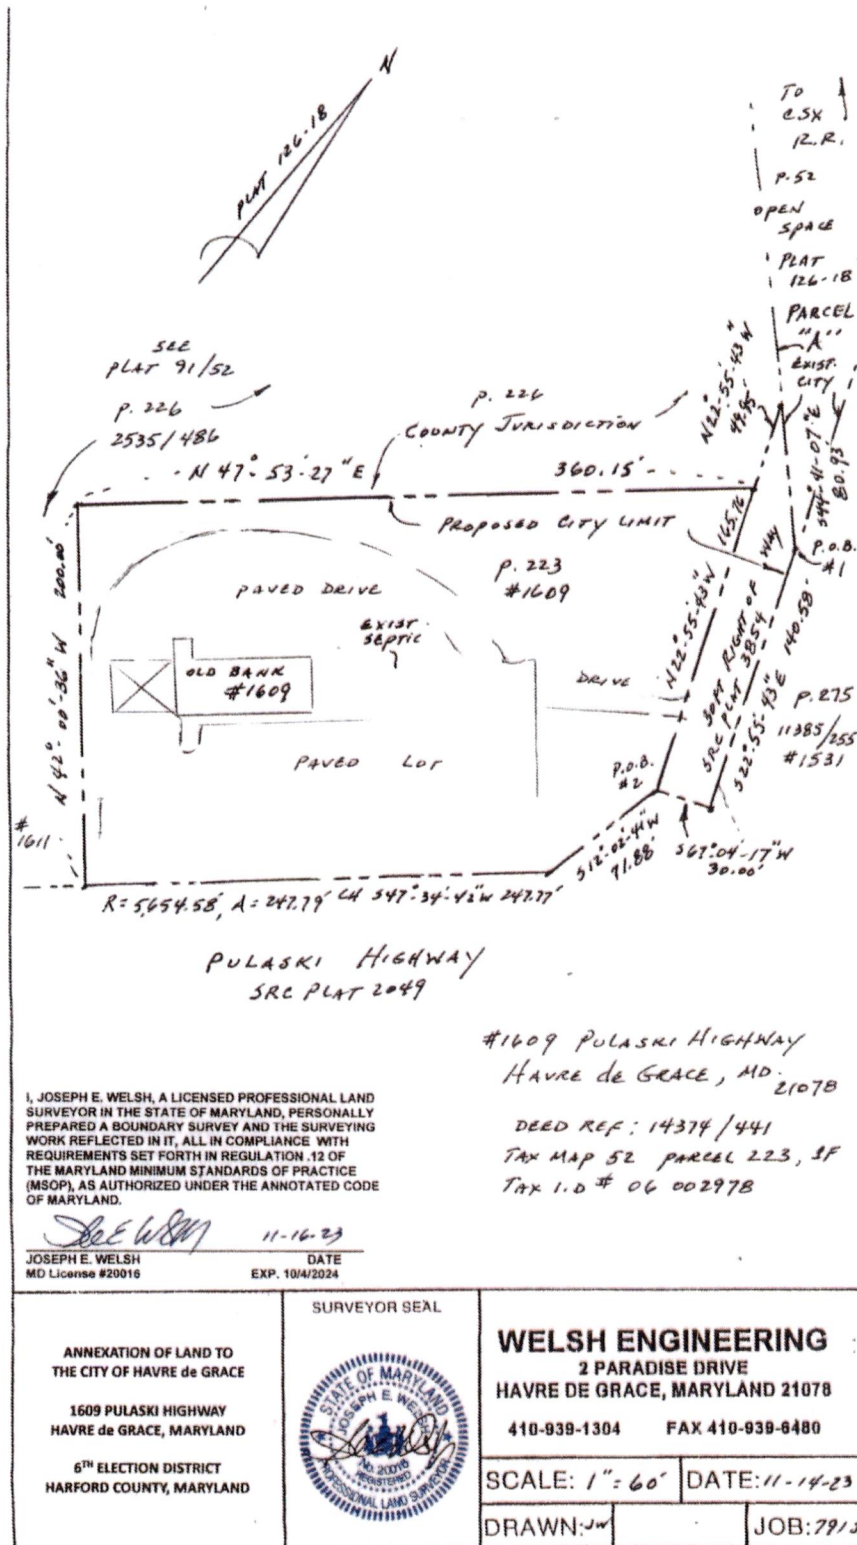 N
PLAT 126-18
TO
CSX
R.R.
P. 52
OPEN
SPACE
PLAT
126-18
PARCEL
"A"
EXIST.
CITY
SEE
PLAT 91/52
P. 226
2535/486
P. 226
COUNTY JURISDICTION
N22°-55'-43"W
49.95'
S44°-41'-07"E
80.93'
N 47°-53'-27"E 360.15'
PROPOSED CITY LIMIT
165.76
P.O.B.
#1
N 42°-00'-36"W 200.00'
PAVED DRIVE
P. 223
#1609
EXIST
SEPTIC
OLD BANK
#1609
DRIVE
N22°-55'-43"W
30FT RIGHT OF WAY
SRC PLAT 3854
S22°-55'-43"E 140.58'
P. 275
11385/255
#1531
PAVED LOT
P.O.B.
#2
#
1611
S12°-02'-41"W
71.88'
S67°-04'-17"W
30.00'
R=5,654.58', A=247.79' CH S47°-34'-42"W 247.77'
PULASKI HIGHWAY
SRC PLAT 2049
#1609 PULASKI HIGHWAY
HAVRE de GRACE, MD.
21078
DEED REF: 14374/441
TAX MAP 52 PARCEL 223, 1F
TAX I.D # 06 002978
I, JOSEPH E. WELSH, A LICENSED PROFESSIONAL LAND
SURVEYOR IN THE STATE OF MARYLAND, PERSONALLY
PREPARED A BOUNDARY SURVEY AND THE SURVEYING
WORK REFLECTED IN IT, ALL IN COMPLIANCE WITH
REQUIREMENTS SET FORTH IN REGULATION .12 OF
THE MARYLAND MINIMUM STANDARDS OF PRACTICE
(MSOP), AS AUTHORIZED UNDER THE ANNOTATED CODE
OF MARYLAND.
11-16-23
JOSEPH E. WELSH DATE
MD License #20016 EXP. 10/4/2024
ANNEXATION OF LAND TO
THE CITY OF HAVRE de GRACE
1609 PULASKI HIGHWAY
HAVRE de GRACE, MARYLAND
6TH ELECTION DISTRICT
HARFORD COUNTY, MARYLAND
SURVEYOR SEAL
STATE OF MARYLAND
JOSEPH E. WELSH
No. 20016
REGISTERED
PROFESSIONAL LAND SURVEYOR
WELSH ENGINEERING
2 PARADISE DRIVE
HAVRE DE GRACE, MARYLAND 21078
410-939-1304 FAX 410-939-6480
SCALE: 1"=60' DATE: 11-14-23
DRAWN: JW JOB: